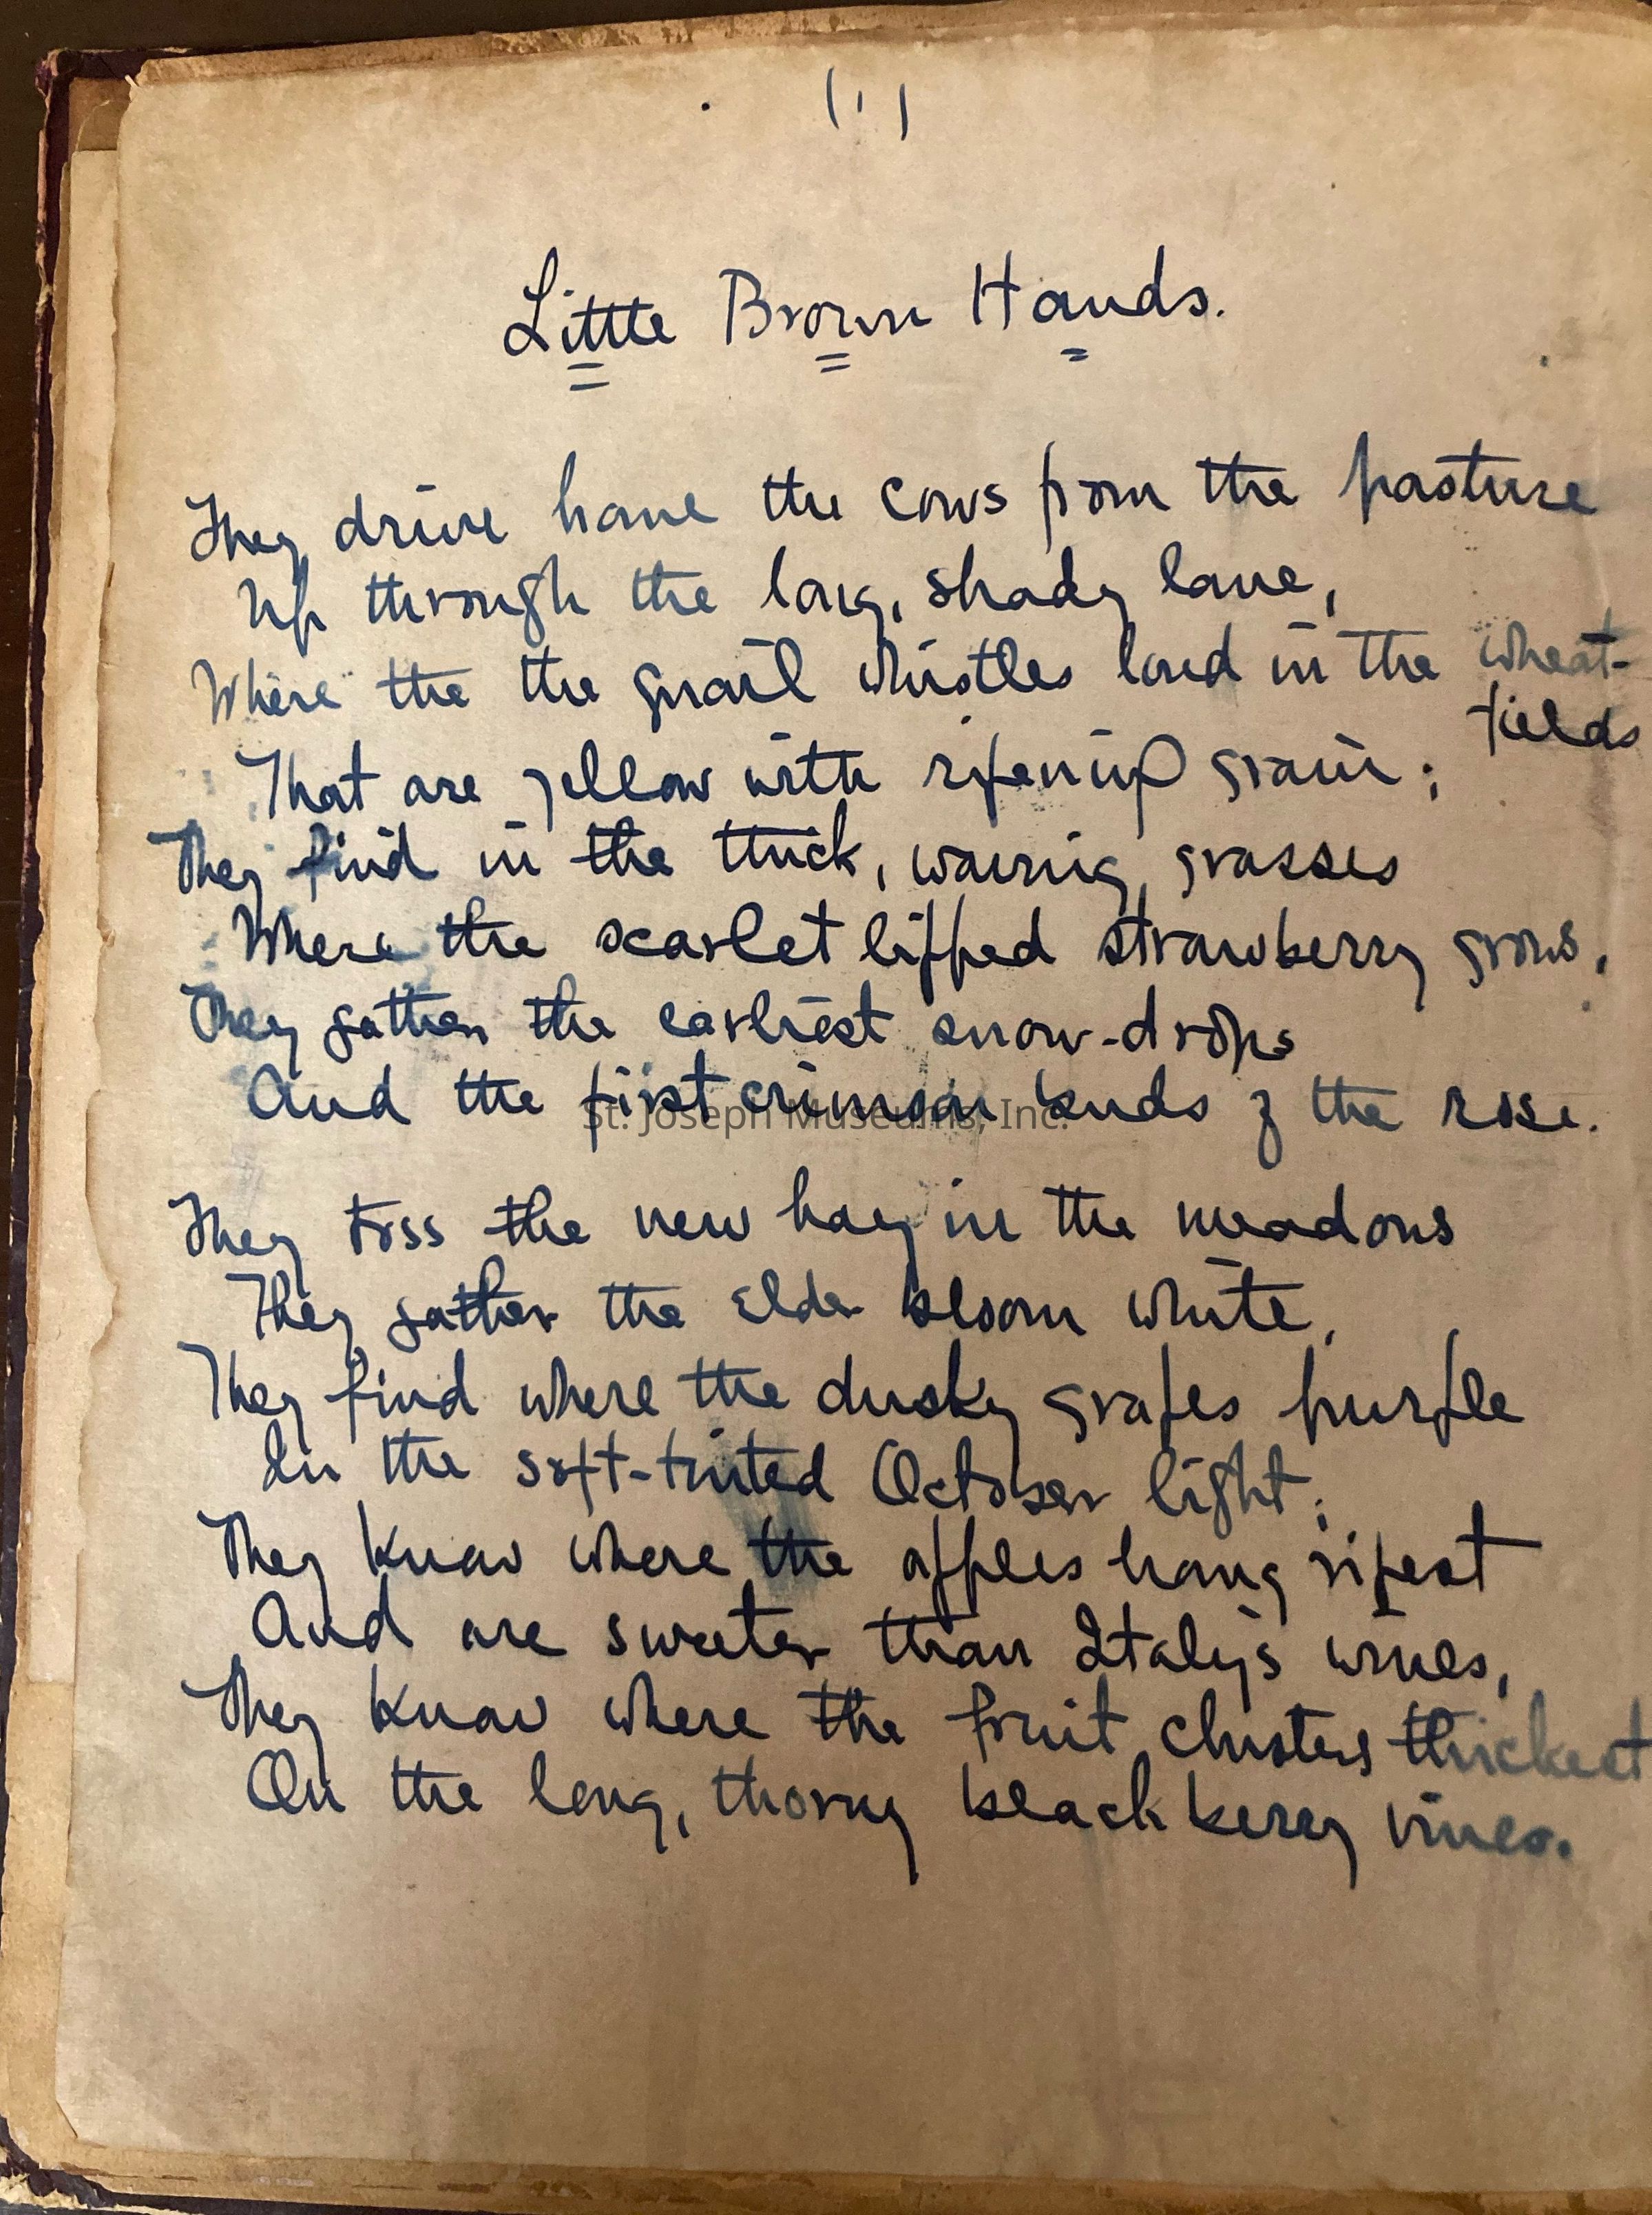 (1)
Little Brown Hands.
They drive home the cows from the pasture
Up through the long, shady lane,
Where the the quail whistles loud in the wheat-
fields
That are yellow with ripening grain;
They find in the thick, waving grasses
Where the scarlet lipped strawberry grows,
They gather the earliest snow-drops
And the first crimson buds of the rose.
St. Joseph Museums, Inc.
They toss the new hay in the meadows
They gather the elder bloom white,
They find where the dusky grapes purple
In the soft-tinted October light;
They know where the apples hang ripest
And are sweeter than Italy's wines,
They know where the fruit clusters thickest
On the long, thorny blackberry vines.